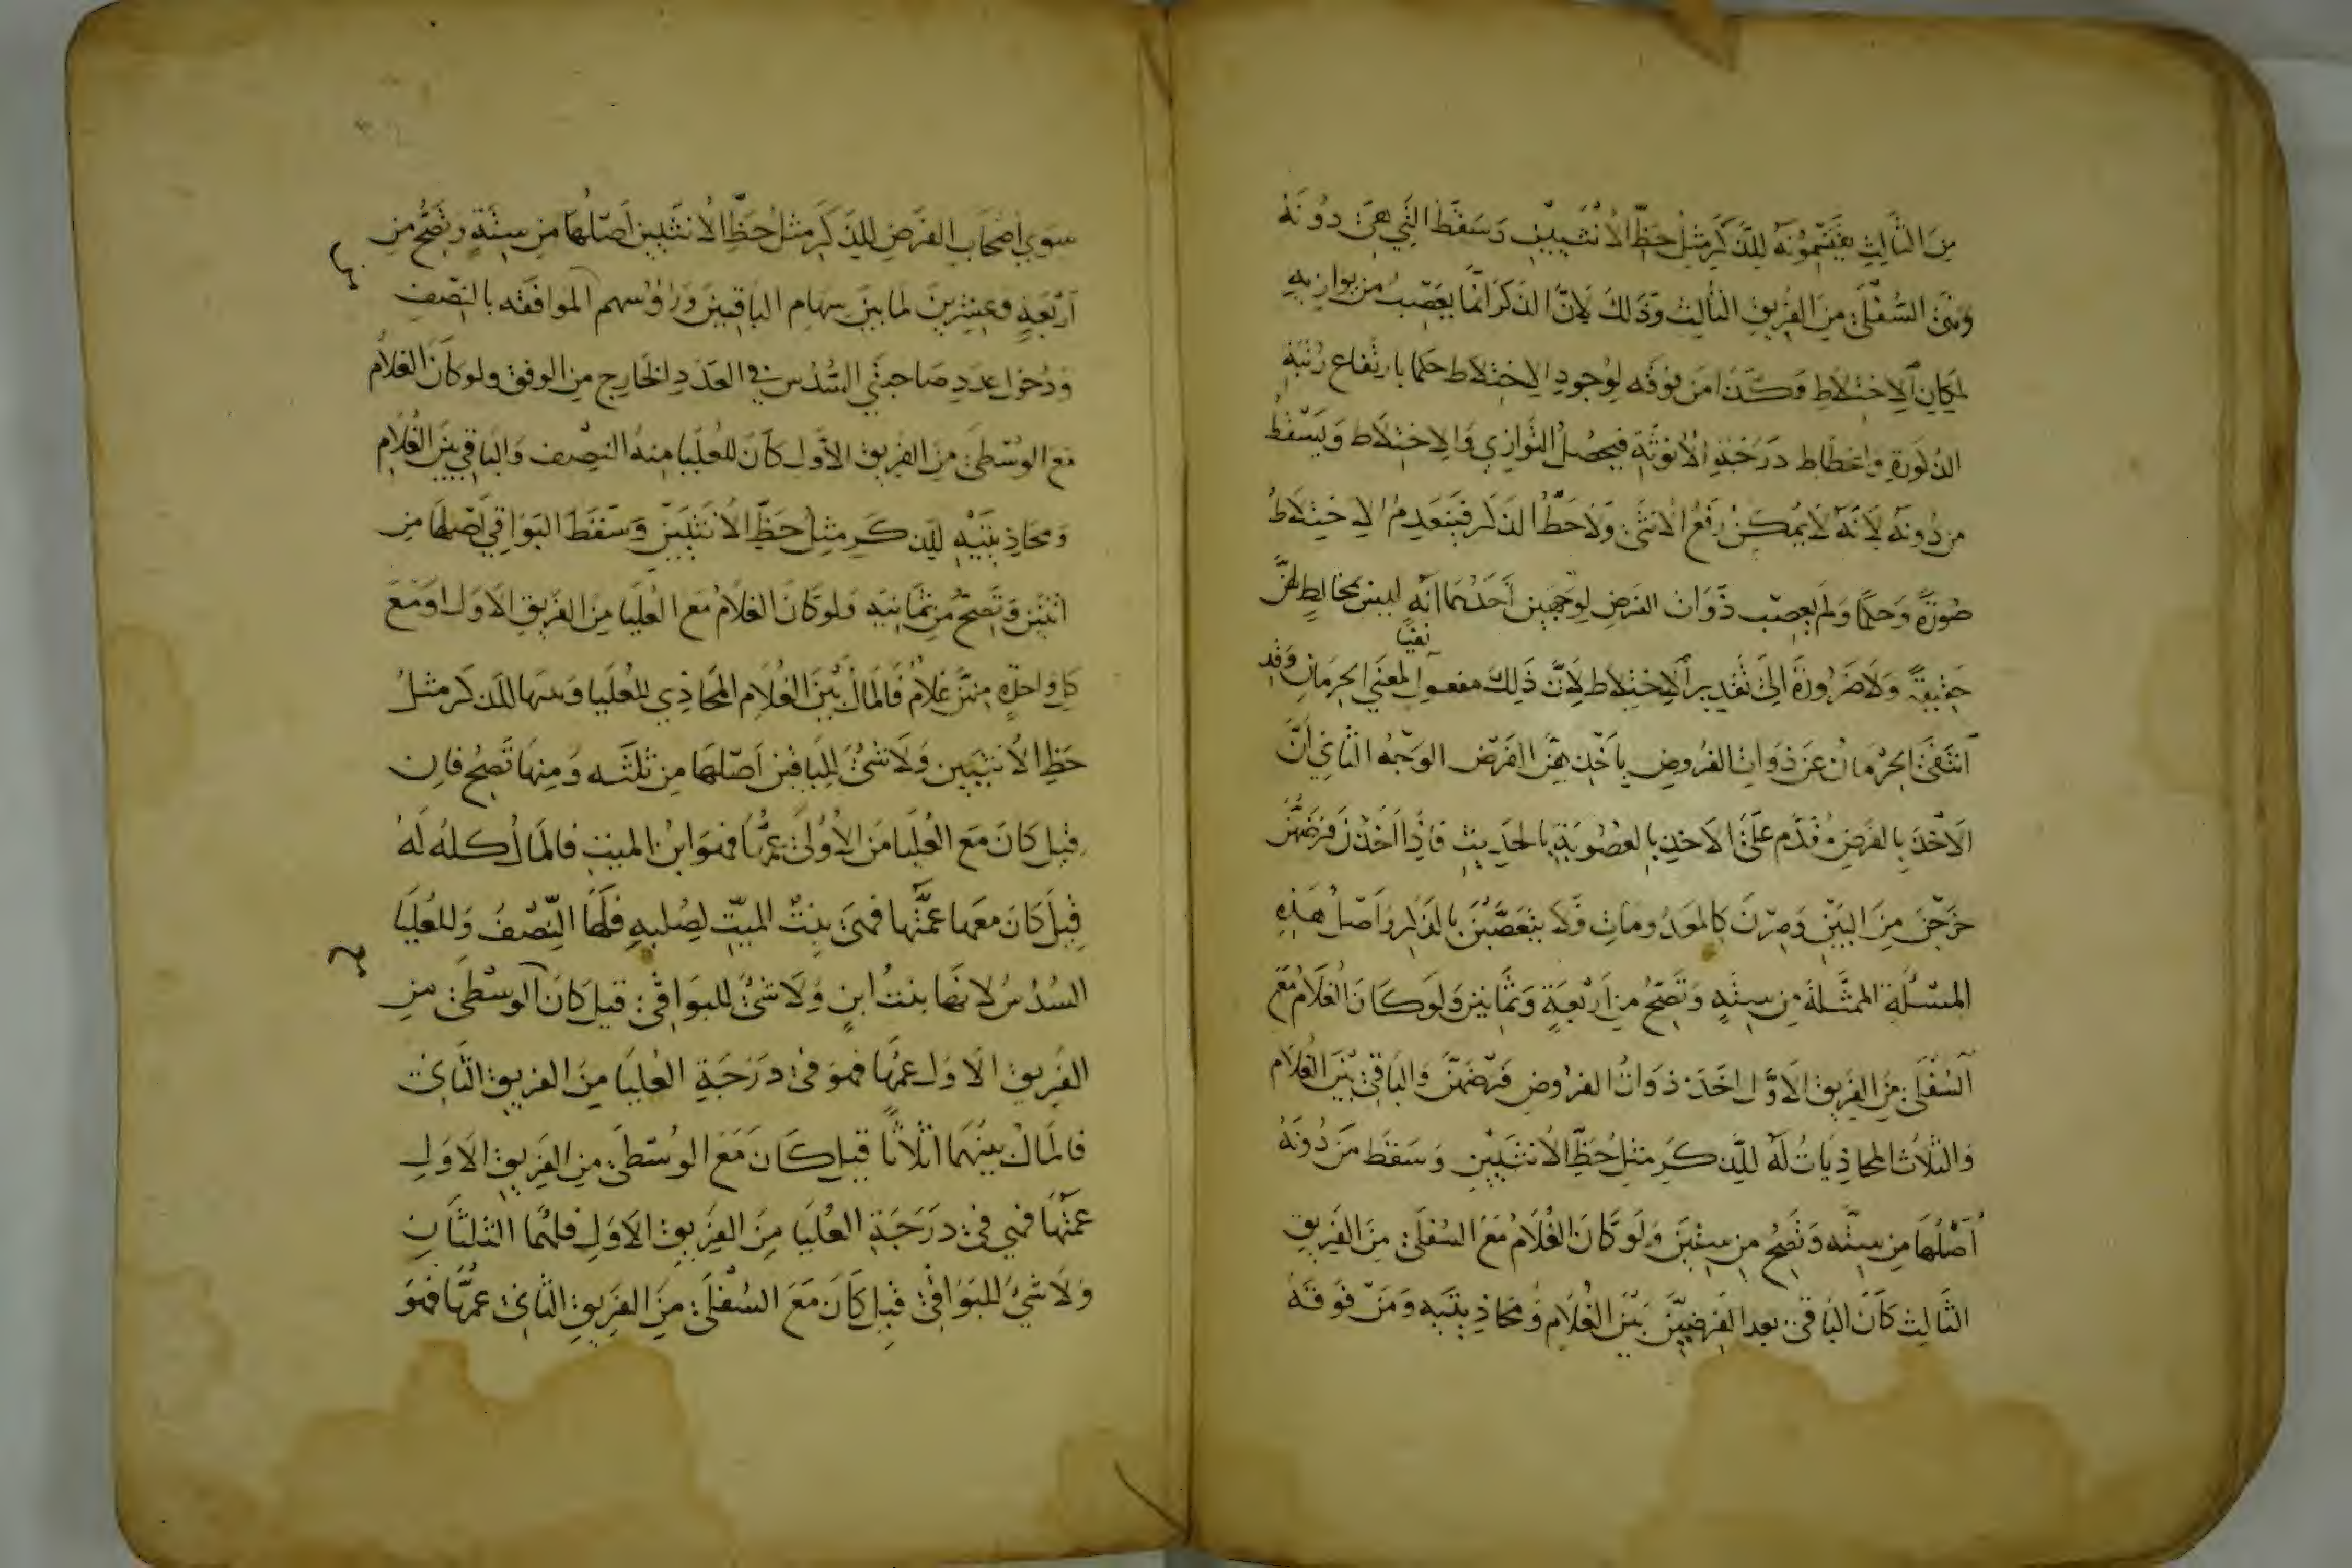 مِنَ الثَّالِثِ يَقْتَسِمُونَهُ لِلذَّكَرِ مِثْلُ حَظِّ الأُنْثَيَيْنِ وَسَقَطَ الَّتِي هِيَ دُونَهُ
وَهِيَ السُّفْلَى مِنَ الفَرِيقِ الثَّالِثِ وَذَلِكَ لِاَنَّ الذَّكَرَ اِنَّمَا يُعَصِّبُ مَنْ يُوَازِيهِ
لِمَكَانِ الاِخْتِلَاطِ وَكَذَا مَنْ فَوْقَهُ لِوُجُودِ الاِخْتِلَاطِ حُكْمًا بِارْتِفَاعِ رُتْبَةِ
الذُّكُورَةِ وَانْحِطَاطِ دَرَجَةِ الاُنُوثَةِ فَيَحْصُلُ التَّوَازِي وَالاِخْتِلَاطُ وَيَسْقُطُ
مَنْ دُونَهُ لِاَنَّهُ لَا يُمْكِنُ رَفْعُ الاُنْثَى وَلَا حَطُّ الذَّكَرِ فَيَنْعَدِمُ الاِخْتِلَاطُ
صُورَةً وَحُكْمًا وَلَمْ يُعَصِّبْ ذَوَاتِ الفَرْضِ لِوَجْهَيْنِ اَحَدُهُمَا اَنَّهُ لَيْسَ بِمُخَالِطٍ لَهُنَّ
حَقِيقَةً وَلَا ضَرُورَةَ اِلَى تَقْدِيرِ الاِخْتِلَاطِ لِاَنَّ ذَلِكَ مَعْقُول لِمَعْنَى الحِرْمَانِ وَقَدِ
نفيا
انْتَفَى الحِرْمَانُ عَنْ ذَوَاتِ الفُرُوضِ بِاَخْذِهِنَّ الفَرْضَ الوَجْهُ الثَّانِي اَنَّ
الاَخْذَ بِالفَرْضِ مُقَدَّمٌ عَلَى الاَخْذِ بِالعُصُوبَةِ بِالحَدِيثِ فَاِذَا اَخَذْنَ فَرْضَهُنَّ
خَرَجْنَ مِنَ البَيْنِ وَصِرْنَ كَالمَعْدُومَاتِ فَلَا يَتَعَصَّبْنَ بِالذَّكَرِ وَاَصْلُ هَذِهِ
المَسْئَلَةِ المُمَثَّلَةِ مِنْ سِتَّةٍ وَتَصِحُّ مِنْ اَرْبَعَةٍ وَثَمَانِينَ وَلَوْ كَانَ الغُلَامُ مَعَ
السُّفْلَى مِنَ الفَرِيقِ الاَوَّلِ اَخَذَتْ ذَوَاتُ الفُرُوضِ فَرْضَهُنَّ وَالبَاقِي بَيْنَ الغُلَامِ
وَالثَّلَاثِ المُحَاذِيَاتِ لَهُ لِلذَّكَرِ مِثْلُ حَظِّ الاُنْثَيَيْنِ وَسَقَطَ مَنْ دُونَهُ
اَصْلُهَا مِنْ سِتَّةٍ وَتَصِحُّ مِنْ سِتِّينَ وَلَوْ كَانَ الغُلَامُ مَعَ السُّفْلَى مِنَ الفَرِيقِ
الثَّالِثِ كَانَ البَاقِي بَعْدَ الفَرْضَيْنِ بَيْنَ الغُلَامِ وَمُحَاذِيَتَيْهِ وَمَنْ فَوْقَهُ
سِوَى اَصْحَابِ الفَرْضِ لِلذَّكَرِ مِثْلُ حَظِّ الاُنْثَيَيْنِ اَصْلُهَا مِنْ سِتَّةٍ وَتَصِحُّ مِنْ
اَرْبَعَةٍ وَعِشْرِينَ لِمَا بَيْنَ سِهَامِ البَاقِينَ وَرُؤُوسِهِم المُوَافَقَةِ بِالنِّصْفِ
وَدُخُولِ عَدَدِ صَاحِبَتَيِ السُّدُسِ فِي العَدَدِ الخَارِجِ مِنَ الوَفْقِ وَلَوْ كَانَ الغُلَامُ
مَعَ الوُسْطَى مِنَ الفَرِيقِ الاَوَّلِ كَانَ لِلعُلْيَا مِنْهُ النِّصْفُ وَالبَاقِي بَيْنَ الغُلَامِ
وَمُحَاذِيَتَيْهِ لِلذَّكَرِ مِثْلُ حَظِّ الاُنْثَيَيْنِ وَسَقَطَ البَوَاقِي اَصْلُهَا مِنِ
اثْنَيْنِ وَتَصِحُّ مِنْ ثَمَانِيَةٍ وَلَوْ كَانَ الغُلَامُ مَعَ العُلْيَا مِنَ الفَرِيقِ الاَوَّلِ اَوْ مَعَ
كُلِّ وَاحِدَةٍ مِنْهُنَّ غُلَامٌ فَالمَالُ بَيْنَ الغُلَامِ المُحَاذِي لِلعُلْيَا وَبَيْنَهَا لِلذَّكَرِ مِثْلُ
حَظِّ الاُنْثَيَيْنِ وَلَا شَيْءَ لِلبَاقِينَ اَصْلُهَا مِنْ ثَلثَةٍ وَمِنْهَا تَصِحُّ فَاِنْ
قِيلَ كَانَ مَعَ العُلْيَا مِنَ الاُولَى عَمُّهَا فَهُوَ ابْنُ المَيِّتِ فَالمَالُ كُلُّهُ لَهُ
قِيلَ كَانَ مَعَهَا عَمَّتُهَا فَهِيَ بِنْتُ المَيِّتِ لِصُلْبِهِ فَلَهَا النِّصْفُ وَلِلعُلْيَا
السُّدُسُ لِاَنَّهَا بِنْتُ ابْنٍ وَلَا شَيْءَ لِلبَوَاقِي قِيلَ كَانَ الوُسْطَى مِنَ
الفَرِيقِ الاَوَّلِ عَمُّهَا فَهُوَ فِي دَرَجَةِ العُلْيَا مِنَ الفَرِيقِ الثَّانِي
فَالمَالُ بَيْنَهُمَا اَثْلَاثًا قِيلَ كَانَ مَعَ الوُسْطَى مِنَ الفَرِيقِ الاَوَّلِ
عَمَّتُهَا فَهِيَ فِي دَرَجَةِ العُلْيَا مِنَ الفَرِيقِ الاَوَّلِ فَلَهُمَا الثُّلُثَانِ
وَلَا شَيْءَ لِلبَوَاقِي قِيلَ كَانَ مَعَ السُّفْلَى مِنَ الفَرِيقِ الثَّانِي عَمُّهَا فَهُوَ